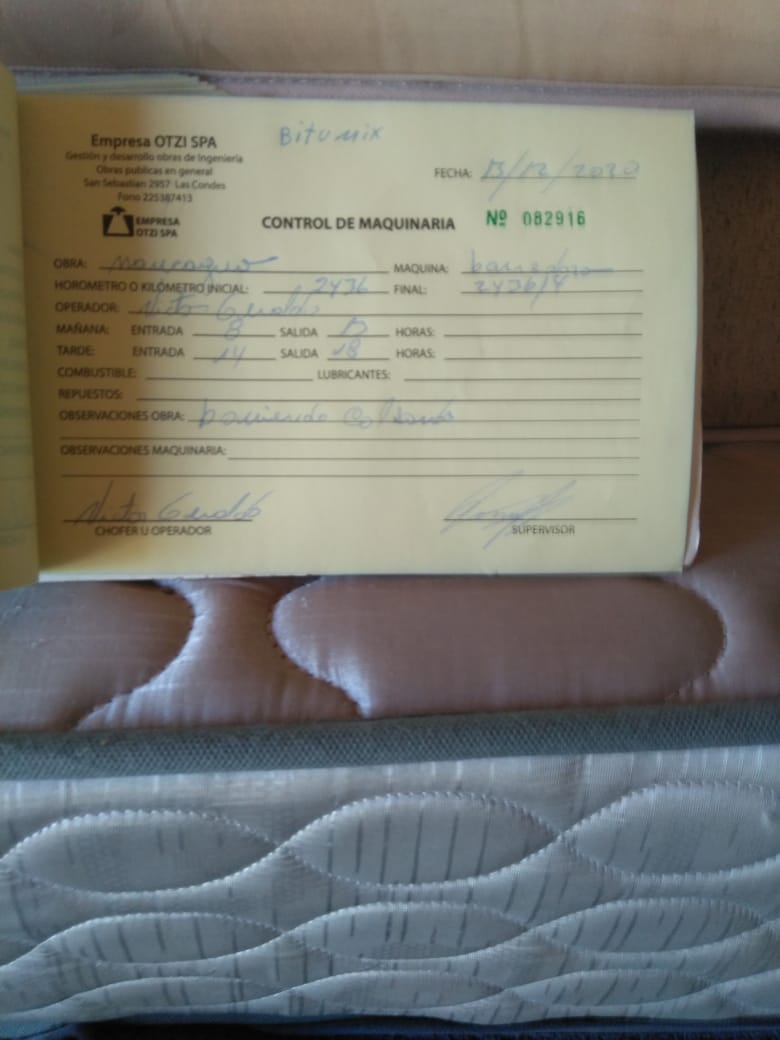 Bitumix
Empresa OTZI SPA
Gestión y desarrollo obras de Ingeniería
Obras publicas en general
San Sebastian 2957 Las Condes
Fono 225387413
FECHA: 13/12/2020
EMPRESA
OTZI SPA
CONTROL DE MAQUINARIA Nº 082916
OBRA: MAQUINA: barredora
HOROMETRO O KILÓMETRO INICIAL: 2436 FINAL: 2436/4
OPERADOR: Victor Geraldo
MAÑANA: ENTRADA 8 SALIDA 13 HORAS:
TARDE: ENTRADA 14 SALIDA 18 HORAS:
COMBUSTIBLE: LUBRICANTES:
REPUESTOS:
OBSERVACIONES OBRA: barriendo Calzada
OBSERVACIONES MAQUINARIA:
Victor Geraldo
CHOFER U OPERADOR SUPERVISOR